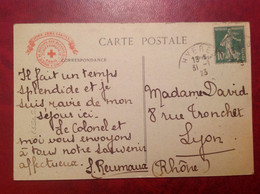 CARTE POSTALE
CORRESPONDANCE
Il fait un temps
splendide et je
suis ravie de mon
séjour ici.
Le Colonel et
moi vous envoyons
à tous notre souvenir
affectueux. S. Reumaux
Madame David
8 rue Tronchet
Lyon
(Rhône)